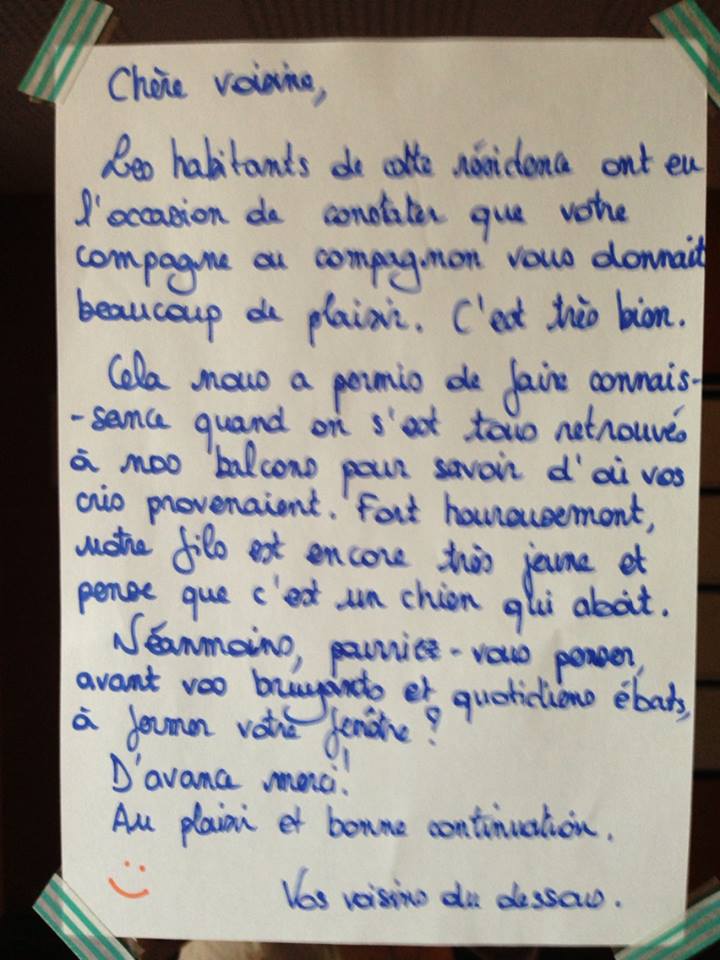 Chère voisine,
Les habitants de cette résidence ont eu
l'occasion de constater que votre
compagne ou compagnon vous donnait
beaucoup de plaisir. C'est très bien.
Cela nous a permis de faire connais-
-sance quand on s'est tous retrouvés
à nos balcons pour savoir d'où vos
cris provenaient. Fort heureusement,
notre fils est encore très jeune et
pense que c'est un chien qui aboit.
Néanmoins, pourriez-vous penser,
avant vos bruyants et quotidiens ébats,
à fermer votre fenêtre ?
D'avance merci!
Au plaisir et bonne continuation.
Vos voisins du dessous.